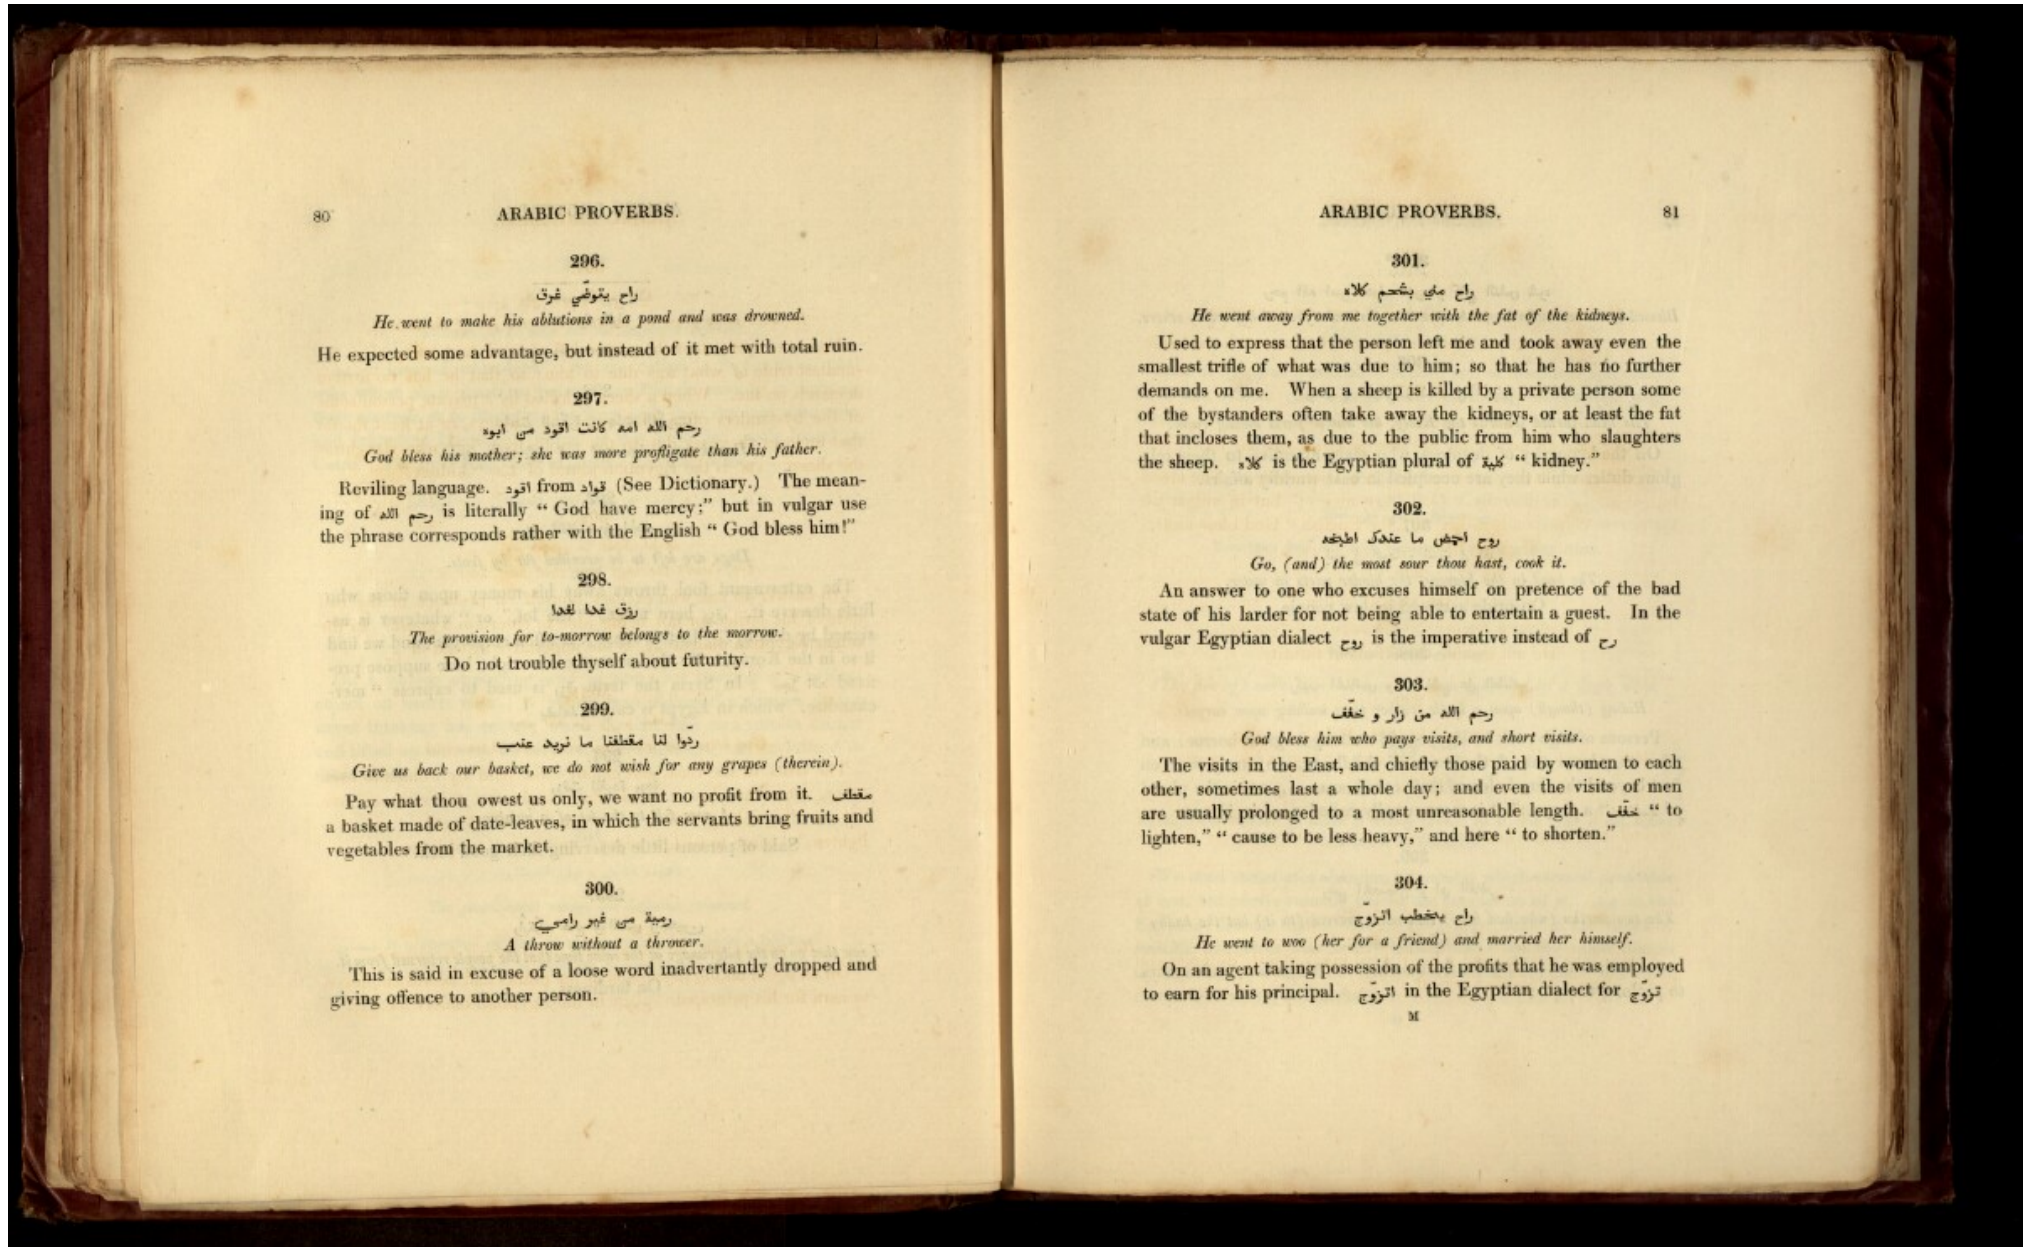 80 ARABIC PROVERBS.
296.
راح يتوضّي غرق
He went to make his ablutions in a pond and was drowned.
He expected some advantage, but instead of it met with total ruin.
297.
رحم الله امه كانت اقود من ابوه
God bless his mother; she was more profligate than his father.
Reviling language. اقود from قواد (See Dictionary.) The mean-
ing of رحم الله is literally “ God have mercy;” but in vulgar use
the phrase corresponds rather with the English “ God bless him!”
298.
رزق غدا لغدا
The provision for to-morrow belongs to the morrow.
Do not trouble thyself about futurity.
299.
ردّوا لنا مقطفنا ما نريد عنب
Give us back our basket, we do not wish for any grapes (therein).
Pay what thou owest us only, we want no profit from it. مقطف
a basket made of date-leaves, in which the servants bring fruits and
vegetables from the market.
300.
رمية من غير رامي
A throw without a thrower.
This is said in excuse of a loose word inadvertantly dropped and
giving offence to another person.
ARABIC PROVERBS. 81
301.
راح مني بشحم كلاه
He went away from me together with the fat of the kidneys.
Used to express that the person left me and took away even the
smallest trifle of what was due to him; so that he has no further
demands on me. When a sheep is killed by a private person some
of the bystanders often take away the kidneys, or at least the fat
that incloses them, as due to the public from him who slaughters
the sheep. كلاه is the Egyptian plural of كلية “ kidney.”
302.
روح احمض ما عندك اطبخه
Go, (and) the most sour thou hast, cook it.
An answer to one who excuses himself on pretence of the bad
state of his larder for not being able to entertain a guest. In the
vulgar Egyptian dialect روح is the imperative instead of رح
303.
رحم الله من زار و خفّف
God bless him who pays visits, and short visits.
The visits in the East, and chiefly those paid by women to each
other, sometimes last a whole day; and even the visits of men
are usually prolonged to a most unreasonable length. خفّف “ to
lighten,” “ cause to be less heavy,” and here “ to shorten.”
304.
راح يخطب اتزوّج
He went to woo (her for a friend) and married her himself.
On an agent taking possession of the profits that he was employed
to earn for his principal. اتزوّج in the Egyptian dialect for تزوّج
M